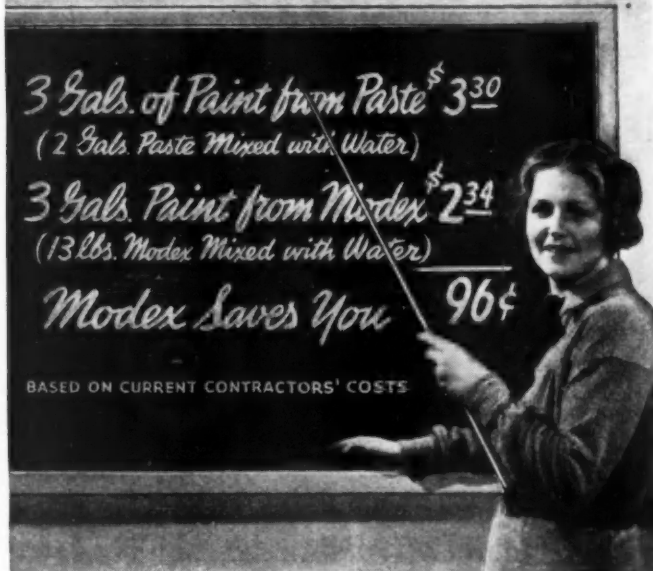 3 Gals. of Paint from Paste $3 30
(2 Gals. Paste Mixed with Water)
3 Gals. Paint from Modex $2 34
(13 lbs. Modex Mixed with Water)
Modex Saves You 96¢
BASED ON CURRENT CONTRACTORS' COSTS